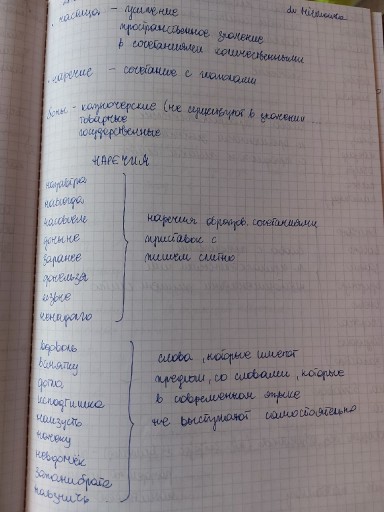 · частица - усиление
пространственное значение
в сочетаниями количественными
· наречие - сочетание с глаголами
боны - казначерские (не существуют в значении
товарные
государственные
НАРЕЧИЯ
назавтра
навсегда
доныне
заранее
донельзя
извне
ненадолго
наречия образов. сочетаниями
приставок с
пишем слитно
вдоволь
всмятку
дотла
исподтишка
наизусть
невдомёк
запанибрата
навзничь
слова, которые имеют
предлоги, со словами, которые
в современном языке
не выступают самостоятельно